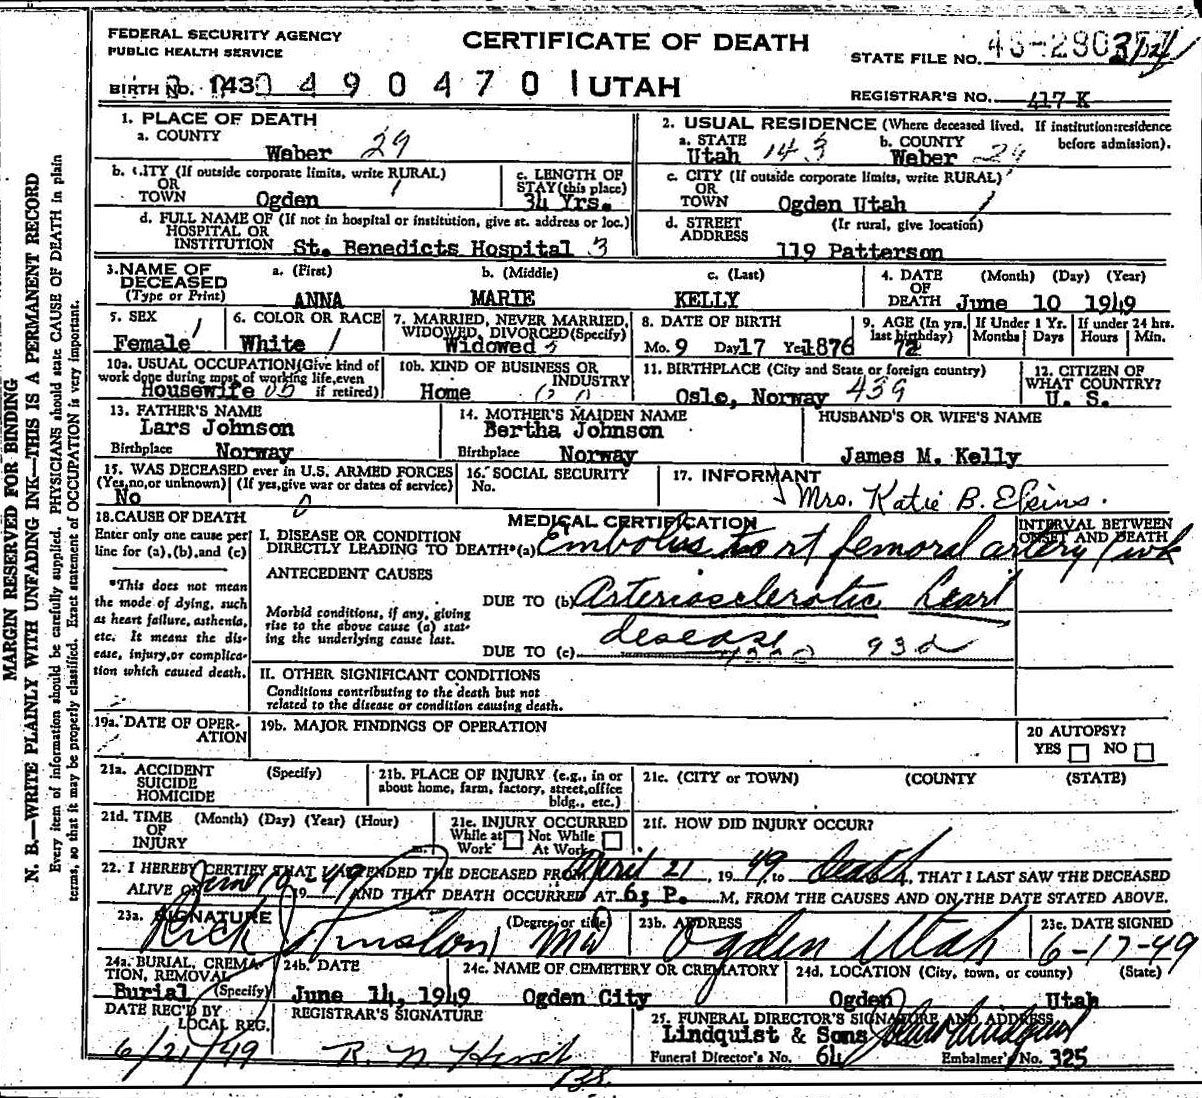 FEDERAL SECURITY AGENCY
PUBLIC HEALTH SERVICE
CERTIFICATE OF DEATH
STATE FILE NO.
BIRTH NO. 490470 UTAH
REGISTRAR'S NO. 417-K
MARGIN RESERVED FOR BINDING
N. B.—WRITE PLAINLY WITH UNFADING INK—THIS IS A PERMANENT RECORD
Every item of information should be carefully supplied. PHYSICIANS should state CAUSE OF DEATH in plain
terms, so that it may be properly classified. Exact statement of OCCUPATION is very important.
1. PLACE OF DEATH
a. COUNTY
Weber 29
2. USUAL RESIDENCE (Where deceased lived. If institution:residence
before admission).
a. STATE b. COUNTY
Utah 143 Weber 29
b. CITY (If outside corporate limits, write RURAL)
OR
TOWN Ogden
c. LENGTH OF
STAY (this place)
34 Yrs.
c. CITY (If outside corporate limits, write RURAL)
OR
TOWN Ogden Utah
d. FULL NAME OF (If not in hospital or institution, give st. address or loc.)
HOSPITAL OR
INSTITUTION St. Benedicts Hospital 3
d. STREET (If rural, give location)
ADDRESS
119 Patterson
3. NAME OF
DECEASED
(Type or Print)
a. (First) b. (Middle) c. (Last)
ANNA MARIE KELLY
4. DATE (Month) (Day) (Year)
OF
DEATH June 10 1949
5. SEX
Female
6. COLOR OR RACE
White
7. MARRIED, NEVER MARRIED,
WIDOWED, DIVORCED (Specify)
Widowed
8. DATE OF BIRTH
Mo. 9 Day 17 Year 1876
9. AGE (In yrs.
last birthday)
72
If Under 1 Yr.
Months Days
If under 24 hrs.
Hours Min.
10a. USUAL OCCUPATION (Give kind of
work done during most of working life, even
if retired)
Housewife
10b. KIND OF BUSINESS OR
INDUSTRY
Home
11. BIRTHPLACE (City and State or foreign country)
Oslo, Norway 439
12. CITIZEN OF
WHAT COUNTRY?
U. S.
13. FATHER'S NAME
Lars Johnson
Birthplace Norway
14. MOTHER'S MAIDEN NAME
Bertha Johnson
Birthplace Norway
HUSBAND'S OR WIFE'S NAME
James M. Kelly
15. WAS DECEASED ever in U.S. ARMED FORCES
(Yes, no, or unknown) (If yes, give war or dates of service)
No 0
16. SOCIAL SECURITY
No.
17. INFORMANT
Mrs. Katie B.
18. CAUSE OF DEATH
Enter only one cause per
line for (a), (b), and (c)
*This does not mean
the mode of dying, such
as heart failure, asthenia,
etc. It means the dis-
ease, injury, or complica-
tion which caused death.
MEDICAL CERTIFICATION
INTERVAL BETWEEN
ONSET AND DEATH
I. DISEASE OR CONDITION
DIRECTLY LEADING TO DEATH*(a) Embolus to rt femoral artery 1 wk
ANTECEDENT CAUSES
Morbid conditions, if any, giving
rise to the above cause (a) stat-
ing the underlying cause last.
DUE TO (b) Arteriosclerotic heart
disease
DUE TO (c) 93d
II. OTHER SIGNIFICANT CONDITIONS
Conditions contributing to the death but not
related to the disease or condition causing death.
19a. DATE OF OPER-
ATION
19b. MAJOR FINDINGS OF OPERATION
20 AUTOPSY?
YES NO
21a. ACCIDENT (Specify)
SUICIDE
HOMICIDE
21b. PLACE OF INJURY (e.g., in or
about home, farm, factory, street, office
bldg., etc.)
21c. (CITY or TOWN) (COUNTY) (STATE)
21d. TIME (Month) (Day) (Year) (Hour)
OF
INJURY m.
21e. INJURY OCCURRED
While at Not While
Work At Work
21f. HOW DID INJURY OCCUR?
22. I HEREBY CERTIFY THAT I ATTENDED THE DECEASED FROM April 21, 1949, to death, THAT I LAST SAW THE DECEASED
ALIVE ON June 19 AND THAT DEATH OCCURRED AT P. M, FROM THE CAUSES AND ON THE DATE STATED ABOVE.
23a. SIGNATURE (Degree or title)
MD
23b. ADDRESS
Ogden Utah
23c. DATE SIGNED
6-17-49
24a. BURIAL, CREMA-
TION, REMOVAL
(Specify)
Burial
24b. DATE
June 14, 1949
24c. NAME OF CEMETERY OR CREMATORY
Ogden City
24d. LOCATION (City, town, or county) (State)
Ogden Utah
DATE REC'D BY
LOCAL REG.
6/21/49
REGISTRAR'S SIGNATURE
25. FUNERAL DIRECTOR'S SIGNATURE AND ADDRESS
Lindquist & Sons
Funeral Director's No. 64 Embalmer's No. 325